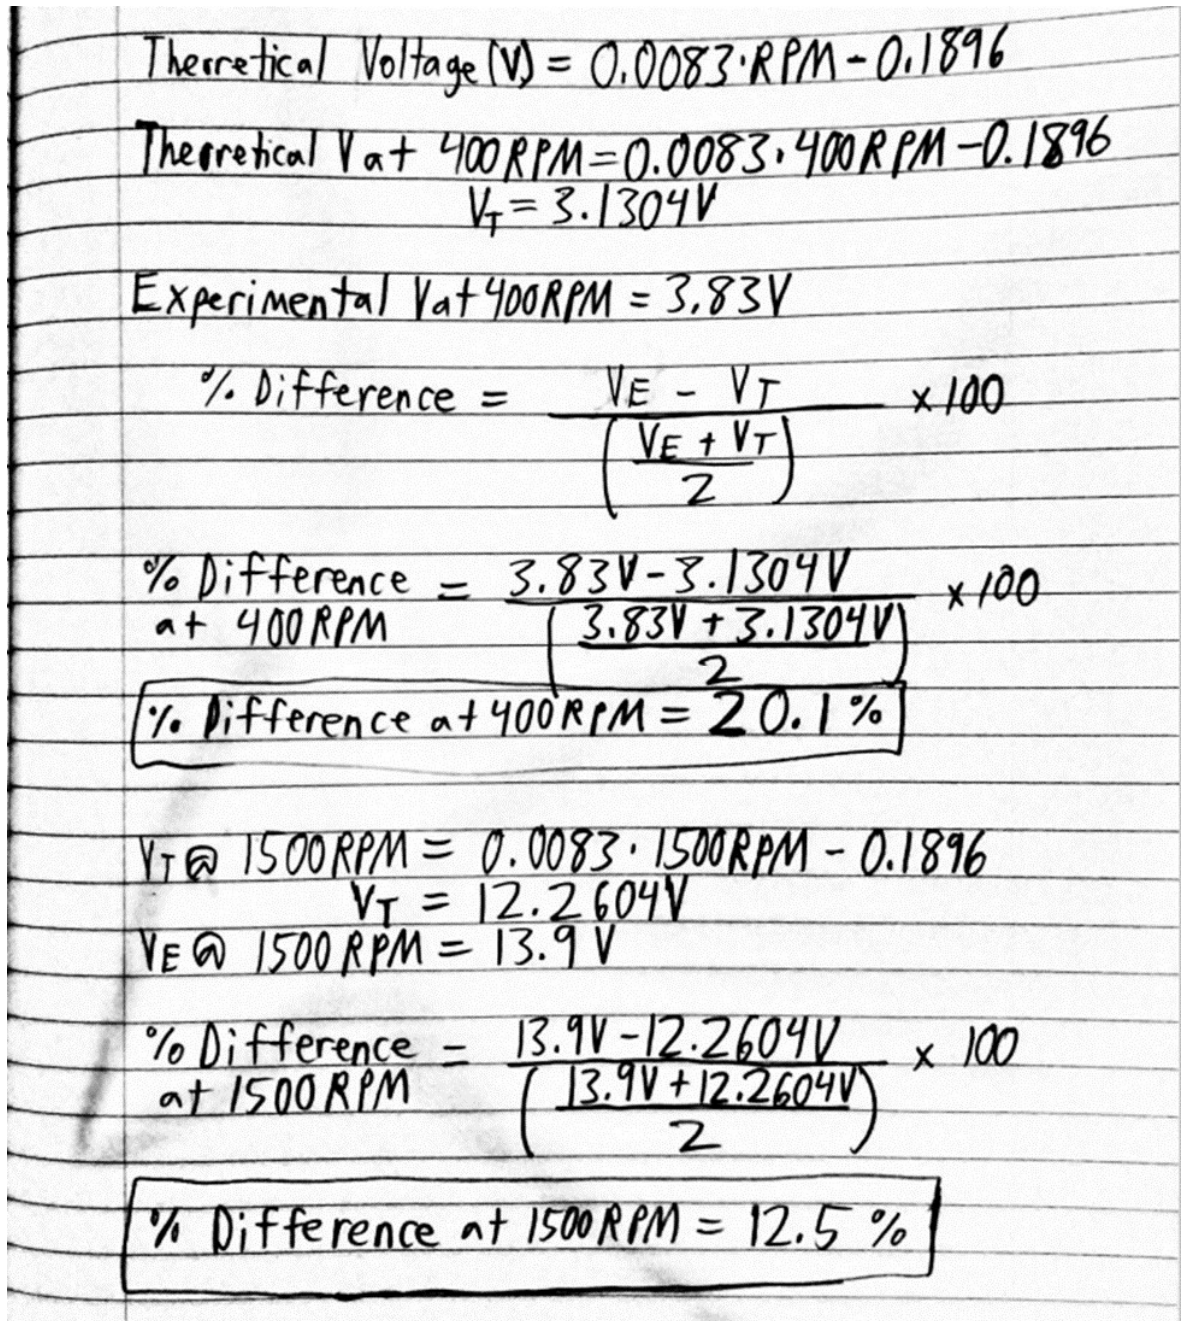 Therretical Voltage (V) = 0.0083·RPM - 0.1896
Therretical V at 400RPM = 0.0083·400RPM - 0.1896
V_T = 3.1304V
Experimental V at 400RPM = 3.83V
% Difference = (V_E - V_T) / ((V_E + V_T) / 2) × 100
% Difference at 400RPM = (3.83V - 3.1304V) / ((3.83V + 3.1304V) / 2) × 100
% Difference at 400RPM = 20.1%
V_T @ 1500RPM = 0.0083·1500RPM - 0.1896
V_T = 12.2604V
V_E @ 1500RPM = 13.9V
% Difference at 1500RPM = (13.9V - 12.2604V) / ((13.9V + 12.2604V) / 2) × 100
% Difference at 1500RPM = 12.5%